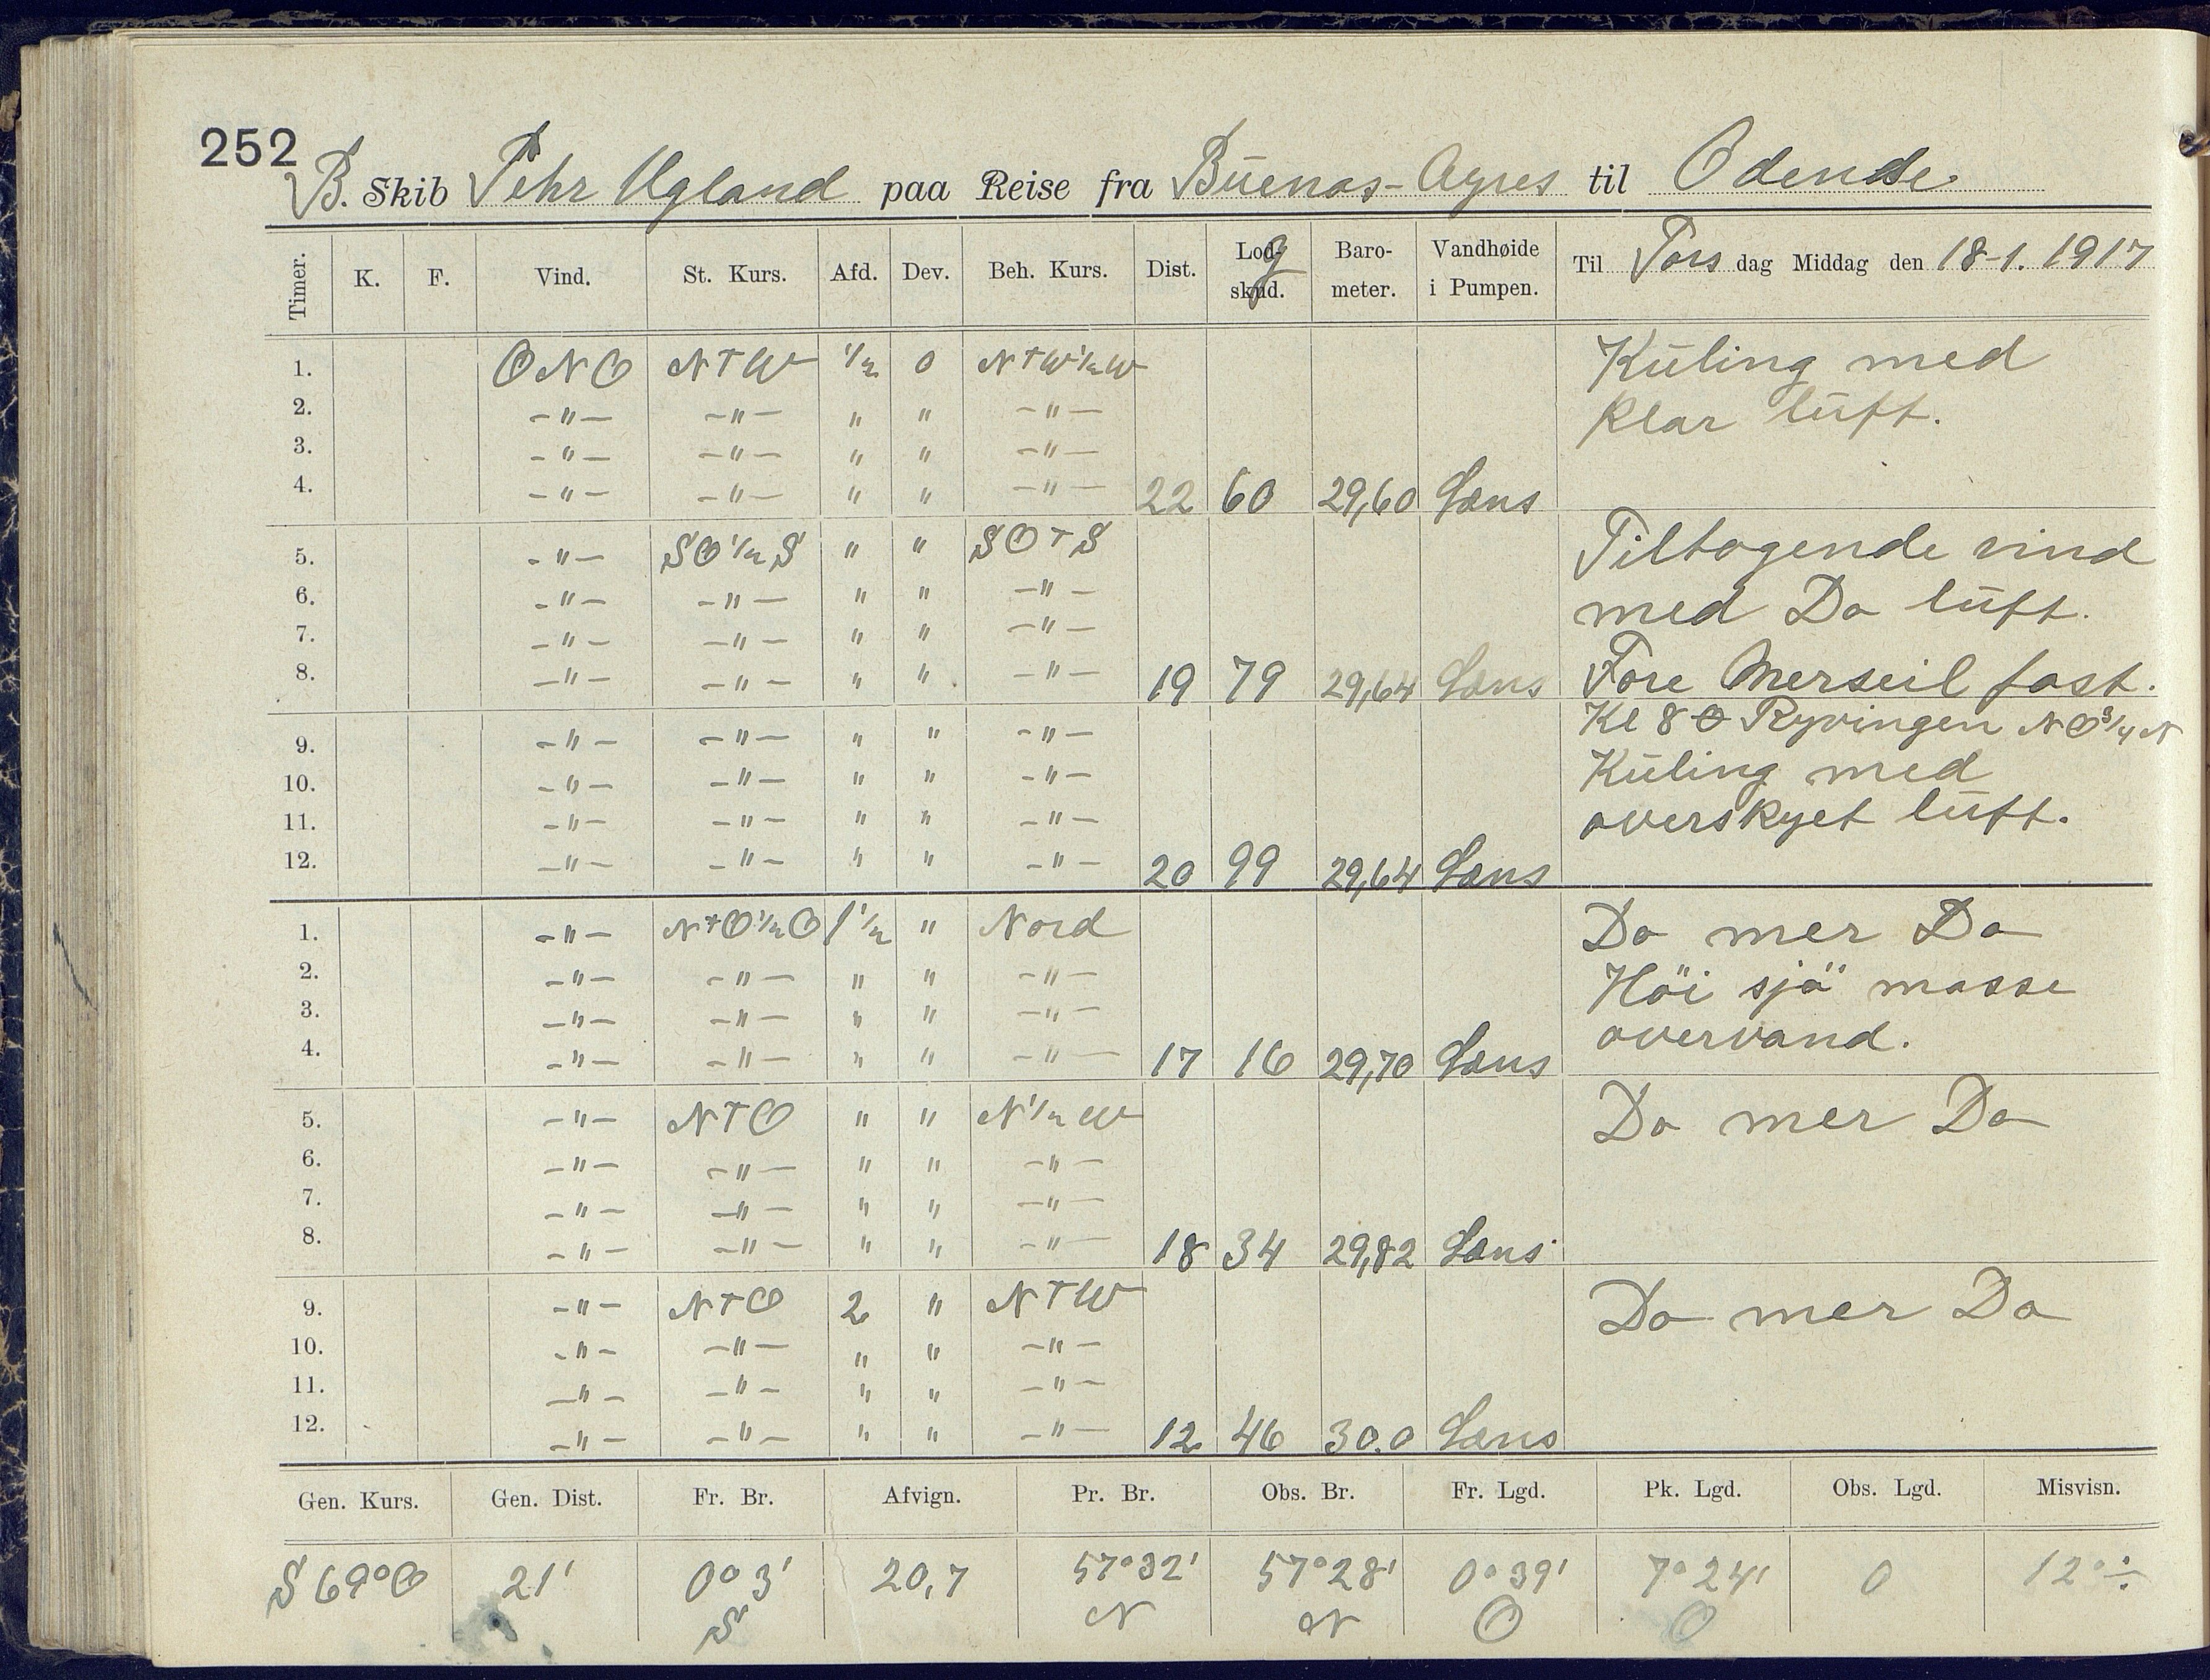 252
B. Skib Pehr Ugland paa Reise fra Buenos-Ayres til Odense
Timer. K. F. Vind. St. Kurs. Afd. Dev. Beh. Kurs. Dist. Logskud. Barometer. Vandhøide i Pumpen. Til Torsdag Middag den 18-1. 1917
1. ONO NTW 1/2 0 NTW1/2W Kuling med
2. -"- -"- " " -"- Klar luft.
3. -"- -"- " " -"-
4. -"- -"- " " -"- 22 60 29,60 Læns
5. -"- SO1/2S " " SOTS Tiltagende vind
6. -"- -"- " " -"- med Do luft.
7. -"- -"- " " -"-
8. -"- -"- " " -"- 19 79 29,64 Læns Fore Merseil fast.
Kl 80 Ryvingen NO3/4N
9. -"- -"- " " -"- Kuling med
10. -"- -"- " " -"-
11. -"- -"- " " -"- overskyet luft.
12. -"- -"- " " -"- 20 99 29,64 Læns
1. -"- NTO1/2O 1 1/2 " Nord Do mer Do
2. -"- -"- " " -"- Höi sjö masse
3. -"- -"- " " -"- overvand.
4. -"- -"- " " -"- 17 16 29,70 Læns
5. -"- NTO " " N1/2W Do mer Do
6. -"- -"- " " -"-
7. -"- -"- " " -"-
8. -"- -"- " " -"- 18 34 29,82 Læns
9. -"- NTO 2 " NTW Do mer Do
10. -"- -"- " " -"-
11. -"- -"- " " -"-
12. -"- -"- " " -"- 12 46 30.0 Læns
Gen. Kurs. Gen. Dist. Fr. Br. Afvign. Pr. Br. Obs. Br. Fr. Lgd. Pk. Lgd. Obs. Lgd. Misvisn.
S 69°O 21' 0° 3' 20,7 57°32' 57°28' 0°39' 7°24' 0 12°÷
S N N O O